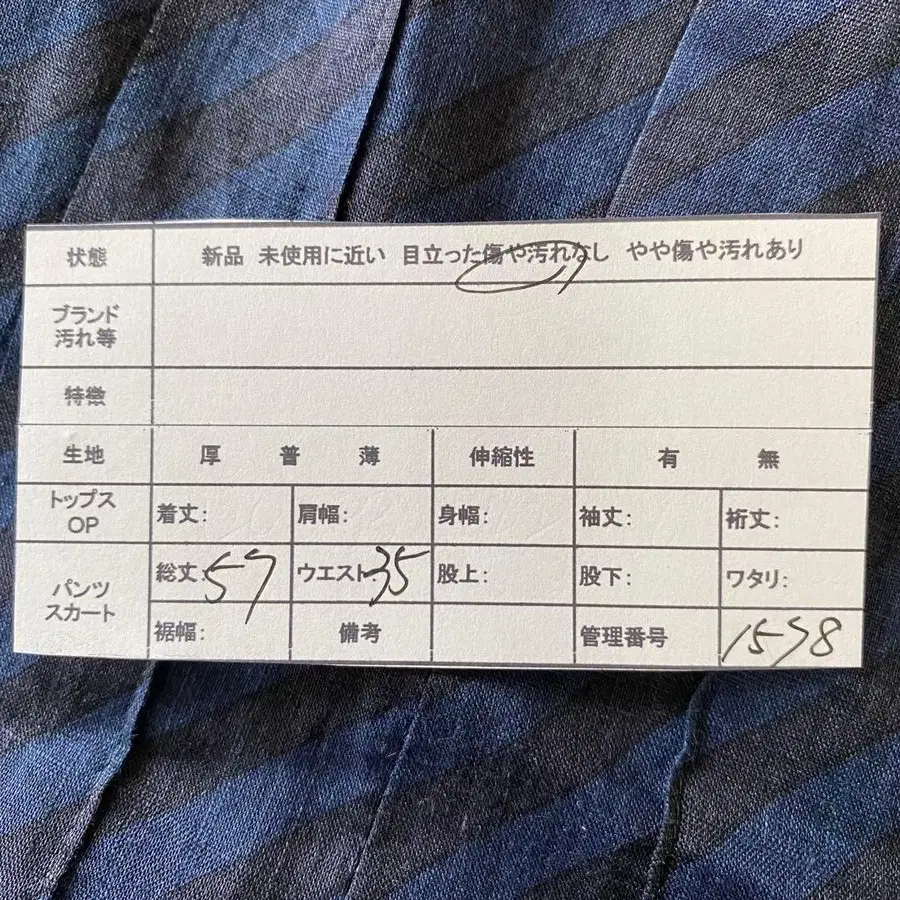 状態 新品 未使用に近い 目立った傷や汚れなし やや傷や汚れあり
ブランド
汚れ等
特徴
生地 厚 普 薄 伸縮性 有 無
トップス
OP 着丈: 肩幅: 身幅: 袖丈: 裄丈:
パンツ
スカート
総丈:57 ウエスト:35 股上: 股下: ワタリ:
裾幅: 備考 管理番号 1578